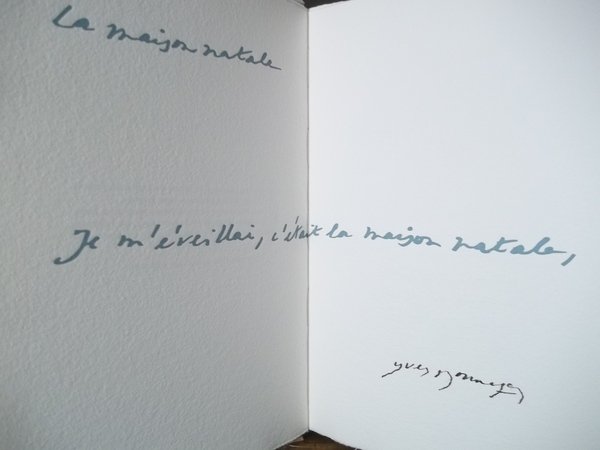 La maison natale
Je m'éveillai, c'était la maison natale,
yves bonnefoy